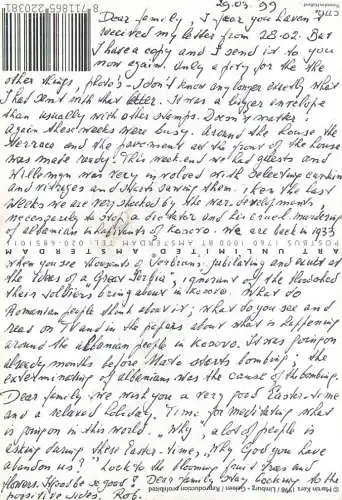 29.03.99
Dear family, I fear you haven't
received my letter from 28.02. But
I have a copy and I send it to you
now again. Only a pity for the the
other things, photo's - I don't know any longer exactly what
I had sent with that letter. It was a bigger envelope
than usually with other stamps. Doesn't matter!
Again these weeks were busy. Around the house, the
terrace and the pavement at the front of the house
was made ready. This weekend we had guests and
Willemyn was very involved with selecting curtain
and vitrages and starts sewing them. Then the last
weeks we are very shocked by the war-developments,
necessarily to stop a dictator and his cruel murdering
of albanian inhabitants of Kosovo. We are back in 1933
ART UNLIMITED AMSTERDAM
when you see thousands of Serbians jubilating and
the idea of a "Great Serbia", ignorant of the bloodshed
their soldiers bring about in Kosovo. What do
Romanian people think about it; what do you see and
read on TV and in the papers about what is happening
around the albanian people in Kosovo. It was going on
already months before Nato starts bombing; the
exterminating of albanians was the cause of the bombing.
Dear family, we wish you a very good Easter-time
and a relaxed holiday. Time for meditating what
is going on in this world. "Why", a lot of people is
asking during these Easter-time, "why God you have
abandon us?" Look to the blooming fruit trees and
flowers. Is God be so good? Dear family stay looking to the
positive sides. Rob.
8 711865 220391